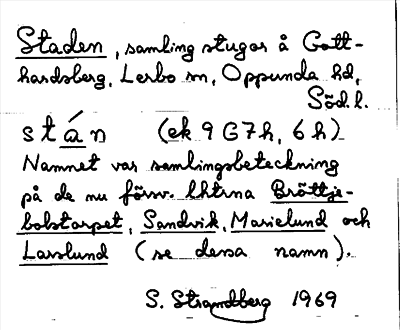 Staden, samling stugor å Gott-
hardsberg, Lerbo sn, Oppunda hd,
Söd.l.
stán (ek 9 G7h, 6h)
Namnet var samlingsbeteckning
på de nu försv. lhtrna Bröttje-
bolstorpet, Sandvik, Marielund och
Larslund (se dessa namn).
S. Strandberg 1969